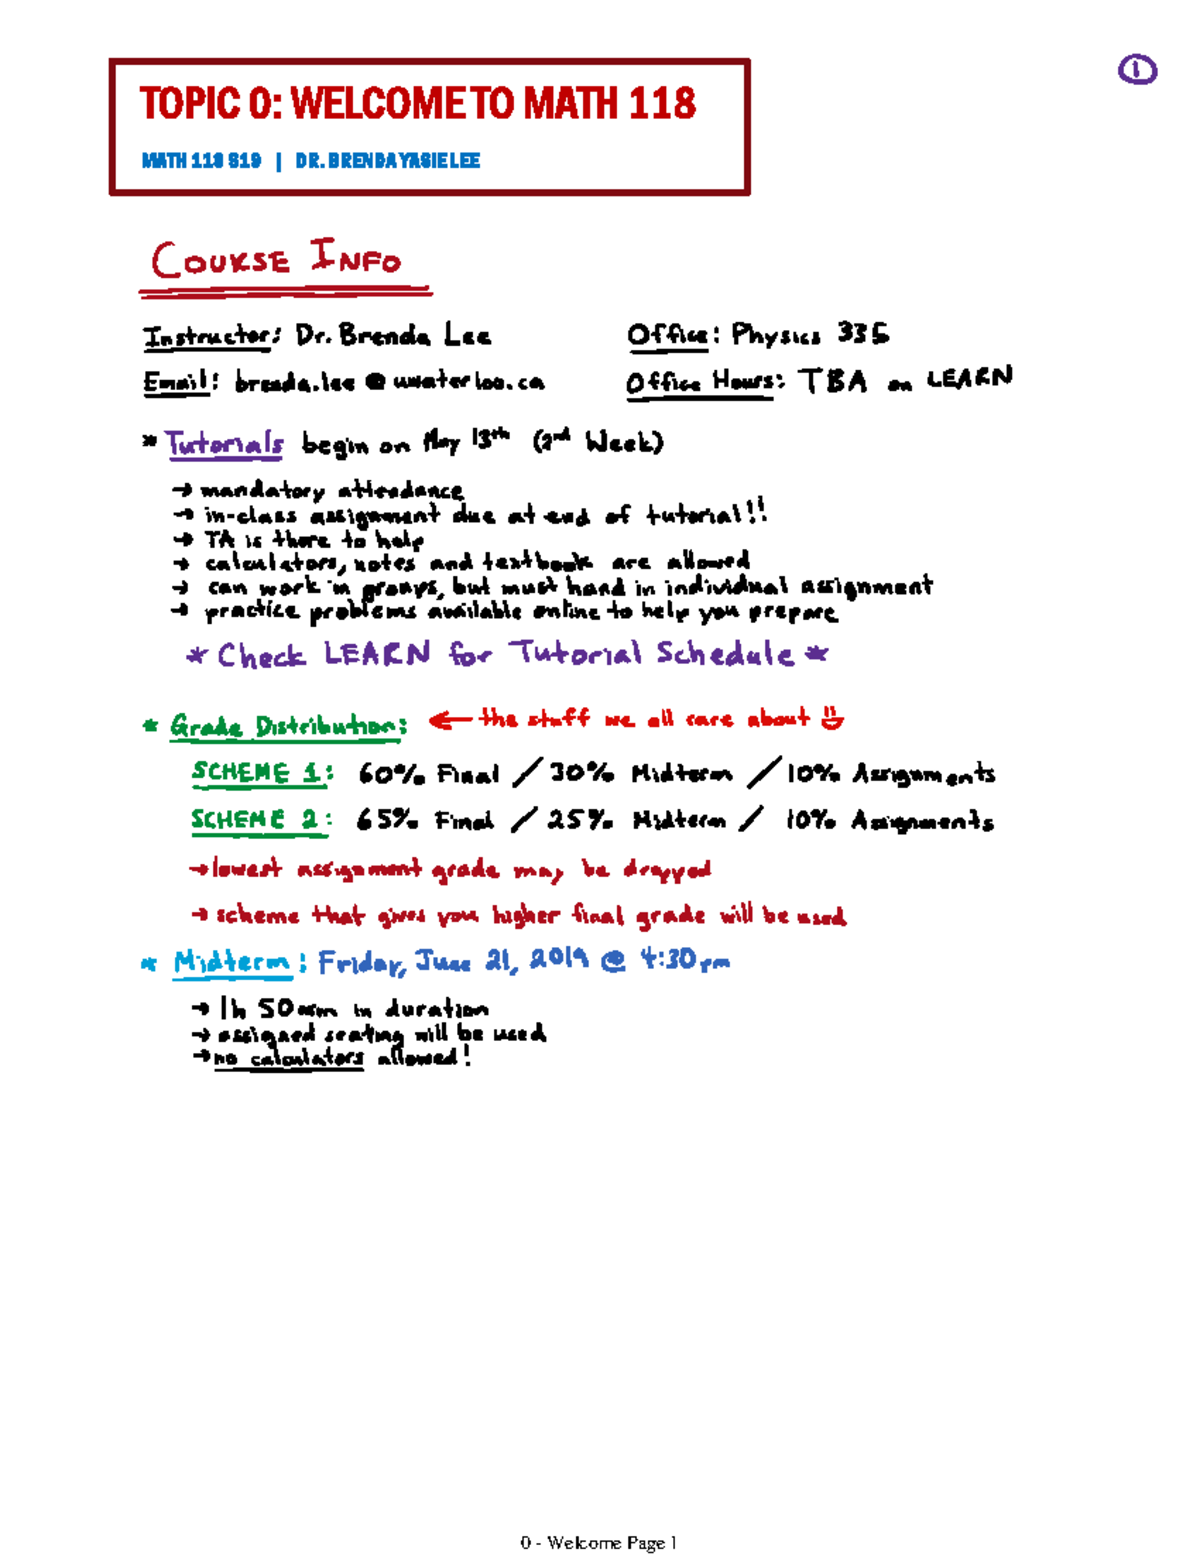 ①
TOPIC 0: WELCOME TO MATH 118
MATH 118 S19 | DR. BRENDA YASIE LEE
COURSE INFO
Instructor: Dr. Brenda Lee Office: Physics 335
Email: brenda.lee @ uwaterloo.ca Office Hours: TBA on LEARN
* Tutorials begin on May 13th (2nd Week)
→ mandatory attendance
→ in-class assignment due at end of tutorial!!
→ TA is there to help
→ calculators, notes and textbook are allowed
→ can work in groups, but must hand in individual assignment
→ practice problems available online to help you prepare
* Check LEARN for Tutorial Schedule *
* Grade Distribution: ← the stuff we all care about
SCHEME 1: 60% Final / 30% Midterm / 10% Assignments
SCHEME 2: 65% Final / 25% Midterm / 10% Assignments
→ lowest assignment grade may be dropped
→ scheme that gives you higher final grade will be used
* Midterm: Friday, June 21, 2019 @ 4:30pm
→ 1h 50min in duration
→ assigned seating will be used
→ no calculators allowed!
0 - Welcome Page 1